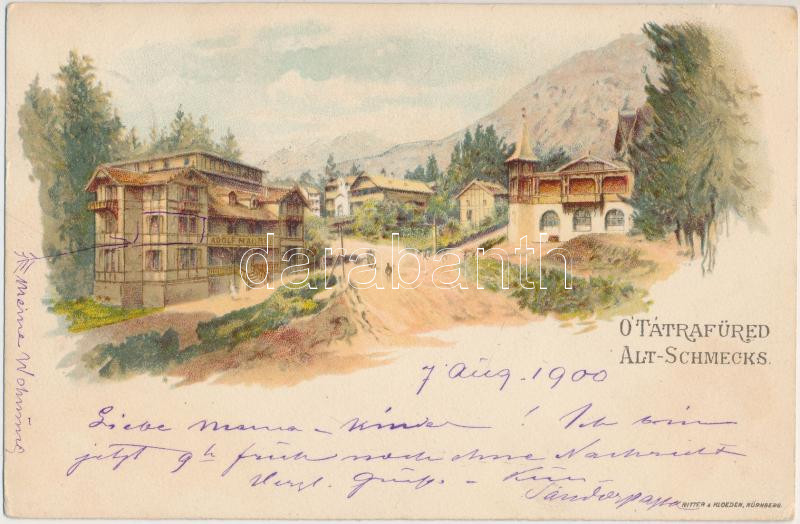 ADOLF
darabanth
Ó'TÁTRAFÜRED
ALT-SCHMECKS.
Meine Wohnung
7 Aug. 1900
Liebe Mama – Kinder! Ich bin
jetzt 9h früh noch ohne Nachricht
Herzl. Grüße –
Sándorpapa
RITTER & KLOEDEN, NÜRNBERG.